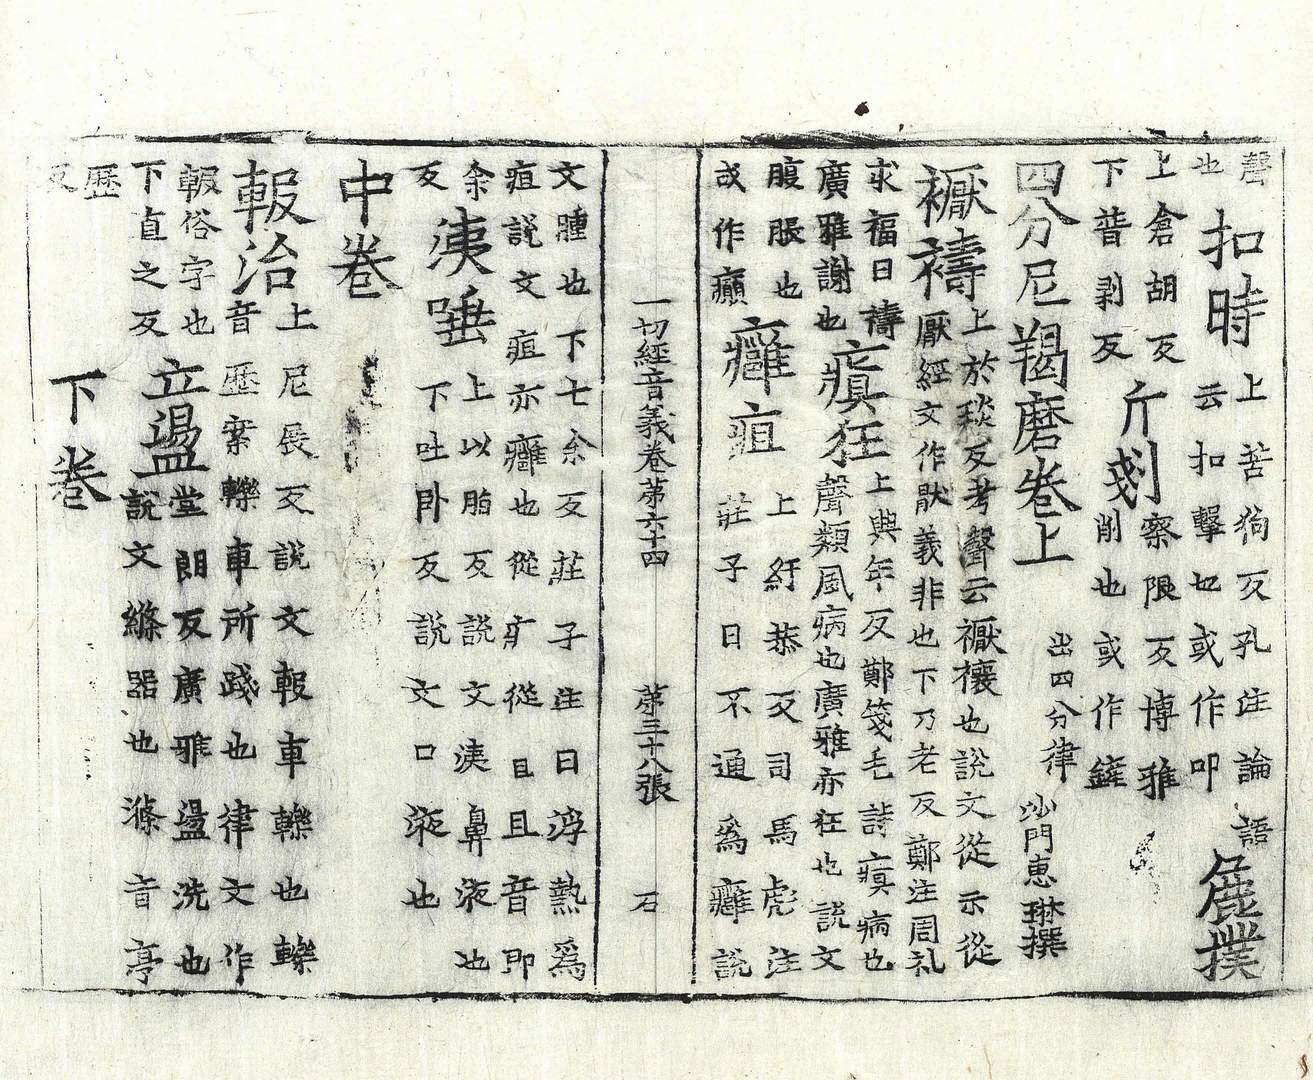 聲
也
扣時
上苦狗反孔注論語
云扣擊也或作叩
麁撲
上倉胡反
下普剥反
斤剗
察限反博雅
削也或作鏟
四分尼羯磨卷上
出四分律
沙門惠琳撰
禱
上於琰反考聲云禳也說文從示從
厭經文作猒義非也下乃老反鄭注周礼
求福曰禱
廣雅謝也
瘨狂
上與年反鄭箋毛詩瘨病也
聲類風病也廣雅亦狂也說文
腹脹也
或作癲
癰疽
上紆恭反司馬彪注
莊子曰不通爲癰說
一切經音義卷第六十四
第三十八張
石
文腫也下七余反莊子注曰浮熱爲
疽說文疽亦癰也從疒從且且音即
余
反
洟唾
上以脂反說文洟鼻液也
下吐卧反說文口液也
中卷
報治
上尼展反說文報車轢也轢
音歷案轢車所踐也律文作
報俗字也
下直之反
立盪
堂朗反廣雅盪洗也
說文滌器也滌音亭
歷
反
下卷